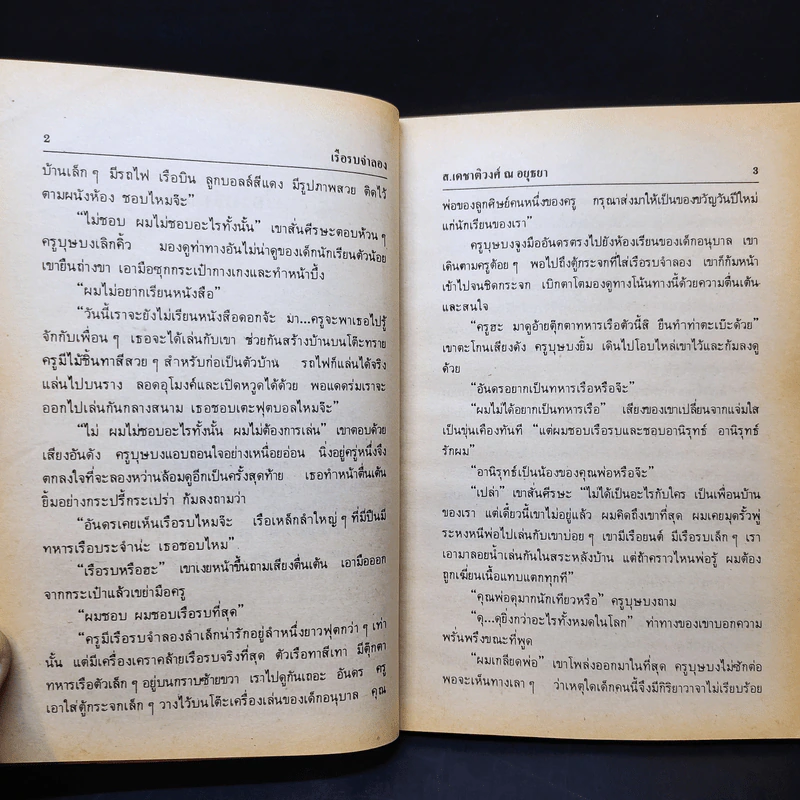 2
เรือรบจำลอง
บ้านเล็กๆ มีรถไฟ เรือบิน ลูกบอลล์สีแดง มีรูปภาพสวย ติดไว้
ตามผนังห้อง ชอบไหมจ๊ะ”
“ไม่ชอบ ผมไม่ชอบอะไรทั้งนั้น” เขาสั่นศีรษะตอบห้วนๆ
ครูบุษบงเลิกคิ้ว มองดูท่าทางอันไม่น่าดูของเด็กนักเรียนตัวน้อย
เขายืนถ่างขา เอามือซุกกระเป๋ากางเกงและทำหน้าบึ้ง
“ผมไม่อยากเรียนหนังสือ”
“วันนี้เราจะยังไม่เรียนหนังสือดอกจ้ะ มา...ครูจะพาเธอไปรู้
จักกับเพื่อนๆ เธอจะได้เล่นกับเขา ช่วยกันสร้างบ้านบนโต๊ะทราย
ครูมีไม้ชิ้นทาสีสวยๆ สำหรับก่อเป็นตัวบ้าน รถไฟก็แล่นได้จริง
แล่นไปบนราง ลอดอุโมงค์และเปิดหวูดได้ด้วย พอแดดร่มเราจะ
ออกไปเล่นกันกลางสนาม เธอชอบเตะฟุตบอลไหมจ๊ะ”
“ไม่ ผมไม่ชอบอะไรทั้งนั้น ผมไม่ต้องการเล่น” เขาตอบด้วย
เสียงอันดัง ครูบุษบงแอบถอนใจอย่างเหนื่อยอ่อน นิ่งอยู่ครู่หนึ่งจึง
ตกลงใจที่จะลองหว่านล้อมดูอีกเป็นครั้งสุดท้าย เธอทำหน้าตื่นเต้น
ยิ้มอย่างกระปรี้กระเปร่า ก้มลงถามว่า
“อันดรเคยเห็นเรือรบไหมจ๊ะ เรือเหล็กลำใหญ่ๆ ที่มีปืนมี
ทหารเรือประจำน่ะ เธอชอบไหม”
“เรือรบหรือฮะ” เขาเงยหน้าขึ้นถามเสียงตื่นเต้น เอามือออก
จากกระเป๋าแล้วเขย่ามือครู
“ผมชอบ ผมชอบเรือรบที่สุด”
“ครูมีเรือรบจำลองลำเล็กน่ารักอยู่ลำหนึ่งยาวฟุตกว่าๆ เท่า
นั้น แต่มีเครื่องเคราคล้ายเรือรบจริงที่สุด ตัวเรือทาสีเทา มีตุ๊กตา
ทหารเรือตัวเล็กๆ อยู่บนกราบซ้ายขวา เราไปดูกันเถอะ อันดร ครู
เอาใส่ตู้กระจกเล็กๆ วางไว้บนโต๊ะเครื่องเล่นของเด็กอนุบาล คุณ
ส.เดชาติวงศ์ ณ อยุธยา
3
พ่อของลูกศิษย์คนหนึ่งของครู กรุณาส่งมาให้เป็นของขวัญวันปีใหม่
แก่นักเรียนของเรา”
ครูบุษบงจูงมืออันดรตรงไปยังห้องเรียนของเด็กอนุบาล เขา
เดินตามครูต้อยๆ พอไปถึงตู้กระจกที่ใส่เรือรบจำลอง เขาก็ก้มหน้า
เข้าไปจนชิดกระจก เบิกตาโตมองดูทางโน้นทางนี้ด้วยความตื่นเต้น
และสนใจ
“ครูฮะ มาดูอ้ายตุ๊กตาทหารเรือตัวนี้สิ ยืนทำท่าตะเบ๊ะด้วย”
เขาตะโกนเสียงดัง ครูบุษบงยิ้ม เดินไปโอบไหล่เขาไว้และก้มลงดู
ด้วย
“อันดรอยากเป็นทหารเรือหรือจ๊ะ”
“ผมไม่ได้อยากเป็นทหารเรือ” เสียงของเขาเปลี่ยนจากแจ่มใส
เป็นขุ่นเคืองทันที “แต่ผมชอบเรือรบและชอบอานิรุทธ์ อานิรุทธ์
รักผม”
“อานิรุทธ์เป็นน้องของคุณพ่อหรือจ๊ะ”
“เปล่า” เขาสั่นศีรษะ “ไม่ได้เป็นอะไรกับใคร เป็นเพื่อนบ้าน
ของเรา แต่เดี๋ยวนี้เขาไม่อยู่แล้ว ผมคิดถึงเขาที่สุด ผมเคยมุดรั้วพู่
ระหงหนีพ่อไปเล่นกับเขาบ่อยๆ เขามีเรือยนต์ มีเรือรบเล็กๆ เรา
เอามาลอยน้ำเล่นกันในสระหลังบ้าน แต่ถ้าคราวไหนพ่อรู้ ผมต้อง
ถูกเฆี่ยนเนื้อแทบแตกทุกที”
“คุณพ่อดุมากนักเทียวหรือ” ครูบุษบงถาม
“ดุ...ดุยิ่งกว่าอะไรทั้งหมดในโลก” ท่าทางของเขาบอกความ
พรั่นพรึงขณะที่พูด
“ผมเกลียดพ่อ” เขาโพล่งออกมาในที่สุด ครูบุษบงไม่ซักต่อ
พอจะเห็นทางเลาๆ ว่าเหตุใดเด็กคนนี้จึงมีกิริยาวาจาไม่เรียบร้อย